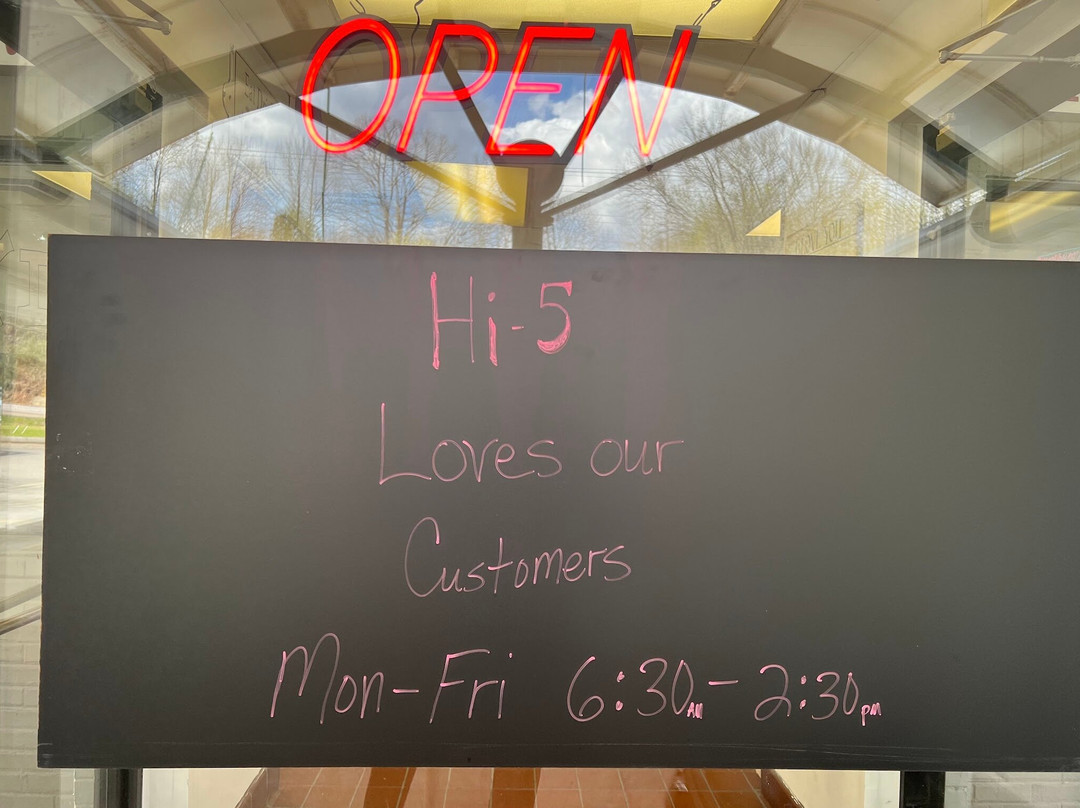 OPEN
Hi-5
Loves our
Customers
Mon-Fri 6:30AM- 2:30pm